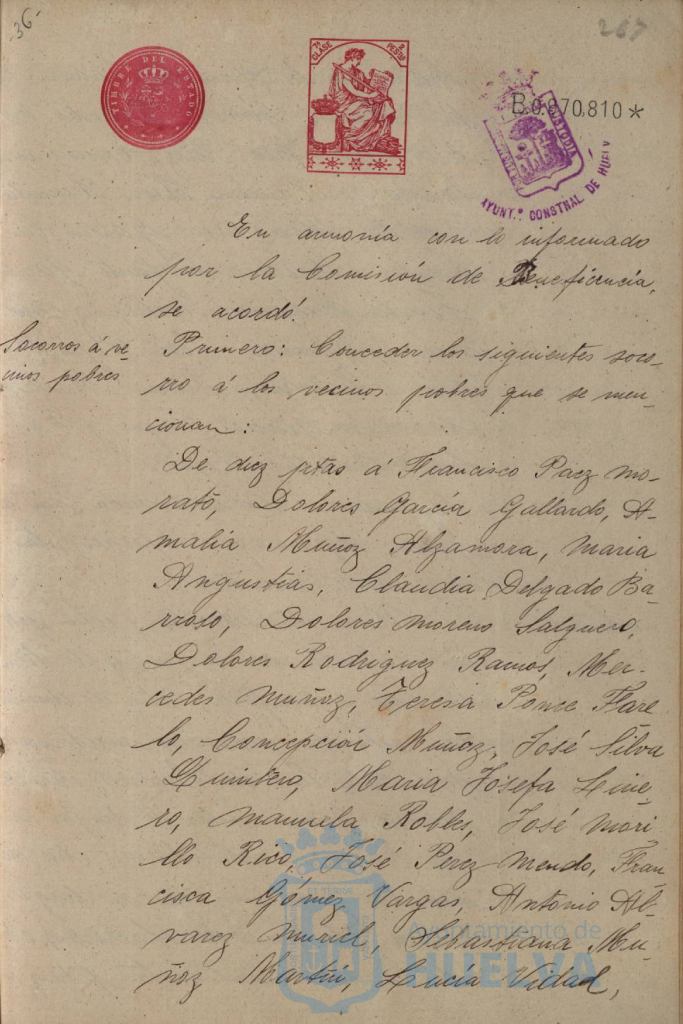 36
267
TIMBRE DEL ESTADO
7ª CLASE
2 PESTAS
B.0.870.810*
CUSTODIA
AYUNT.º CONSTNAL DE HUELV
En armonía con lo informado
por la Comisión de Beneficencia,
se acordó.
Socorros á ve-
cinos pobres
Primero: Conceder los siguientes soco-
rro á los vecinos pobres que se men-
cionan:
De diez ptas á Francisco Paez Mo-
rato, Dolores García Gallardo, A-
malia Muñoz Alzamora, Maria
Angustias, Claudia Delgado Ba-
rroso, Dolores Moreno Salguero,
Dolores Rodriguez Ramos, Mer-
cedes Muñoz, Teresa Ponce Flare-
lo, Concepción Muñoz, José Silva
Quintero, Maria Josefa Line-
ro, Manuela Robles, José Mori
llo Rico, José Perez Mendo, Fran-
cisca Gómez Vargas, Antonio Al-
varez Muriel, Sebastiana Mu-
ñoz Martín, Lucía Vidal,
Ayuntamiento de
HUELVA